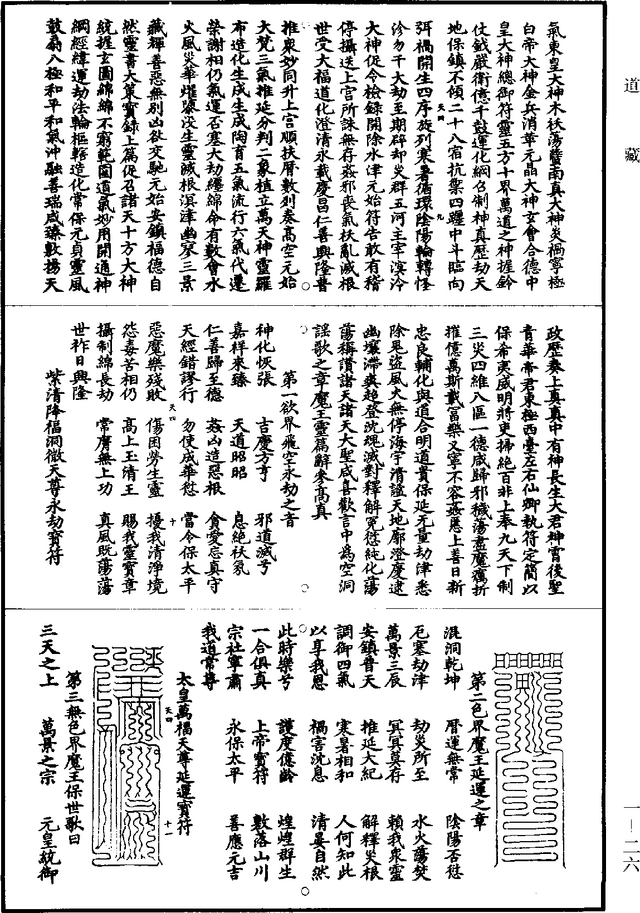 氣東皇大神木秩蕩醫南真大神炎禍寧極
白帝大神金兵消華元晶大神玄會合德中
皇大神總御符靈五方十界萬道之神握鈴
仗鉞嚴衛億千鼓運化綱召制神真歷劫天
地保鎮不傾二十八宿抗禦四躔中斗臨向
弭禍開生四序旋列寒暑循環陰陽輪轉怪
沴勿干大劫至期辟却災群五河主宰溟泠
大神促令檢錄開除水津元始符告敢有稽
停攝送上宮所誅無存姦邪喪氣袄亂滅根
世受大福道化澄清永載慶昌仁善興隆普
推衆妙同升上宮順扶曆數列奏高空元始
大梵三氣推延分判二象植立萬天神靈羅
布造化生成生成陶育五氣流行六氣代遷
榮謝相仍氣運否塞大劫纏綿命有數會水
火風災華燿鑒沒生靈滅根溟涬幽寥三景
藏輝善惡無別凶欲交馳元始安鎮福德自
然靈書大策寶錄上篇促召諸天十方大神
統握玄圖綿綿不窮範圍道氣妙用開通神
綱經緯運劫法輪樞轄造化常保元貞靈風
鼓扇八極和平和氣沖融善瑞咸臻數揚天
政歷奏上真真中有神長生大君神霄後聖
青華帝君東極西臺左右仙卿執符定簡以
保希夷威明將吏掃絕百非上奉九天下制
三炎四維八區一德咸歸邪穢蕩盡魔癘折
摧億萬斯載富樂乂寧不容姦慝上善日新
忠良輔化與道合明道貫保延无量劫津悉
除見盜風火無停海宇清謐天地廓澄度逮
幽壤滯爽超登沈魂滅對釋解冤愆純化蕩
蕩稱讚諸天諸天大聖咸喜歡言中為空洞
謠歌之章魔王靈篇辭參高真
第一欲界飛空永劫之音
神化恢張　古魔方亨　邪道滅兮
嘉祥來臻　天道昭昭　息絕袄氛
仁善歸至德　姦凶造惡根　貪愛忘真守
天經錯謬行　勿使成華愆　當令保太平
惡魔樂殘敗　傷困勞生靈　擾我清淨境
怨毒苦相仍　高上玉清王　賜我靈寶章
攝制綿長劫　常膺無上功　真風既蕩蕩
世祚日興隆
紫清降福洞微天尊永劫寶符
第二色界魔王延運之章
混洞乾坤　曆運無常　陰陽否愆
厄塞劫津　劫災所至　水火蕩焚
萬景三辰　冥冥莫存　賴我衆靈
安鎮普天　推延大紀　解釋災根
調御四氣　寒暑相和　人何知此
以享我恩　禍害沈息　清晏自然
此時樂兮　護度僊齡　煌煌群生
一合俱真　上帝寶符　數落山川
宗社寧肅　永保太平　善應元吉
我道常尊
太皇萬福天尊延運寶符
第三無色界魔王保世歌曰
三天之上　萬景之宗　元皇統御
道
藏
一—二六